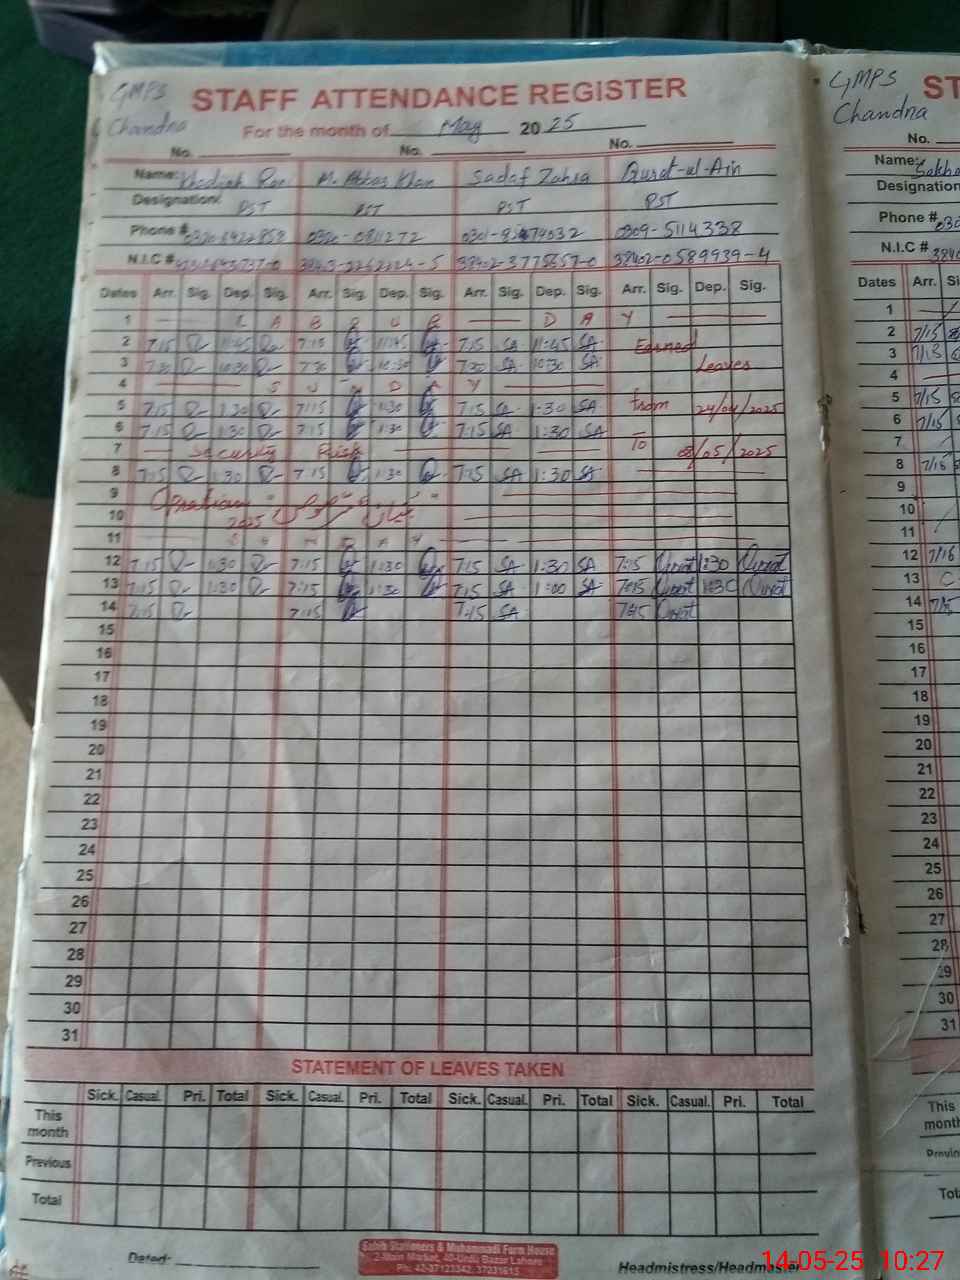 GMPS STAFF ATTENDANCE REGISTER
Chandna For the month of May 2025
No. No. No.
Name: M. Abbas Khan Sadaf Zahra Qurat-ul-Ain
Designation: PST PST PST PST
Phone # 0320-0811272 0309-5114338
N.I.C # 38402-0589939-4
Dates Arr. Sig. Dep. Sig. Arr. Sig. Dep. Sig. Arr. Sig. Dep. Sig. Arr. Sig. Dep. Sig.
1 L A B O U R D A Y
2 7:15 11:45 7:15 11:45 7:15 SA 11:45 SA Earned
3 7:30 10:30 7:30 10:30 7:30 SA 10:30 SA Leaves
4 S U N D A Y
5 7:15 1:30 7:15 1:30 7:15 SA 1:30 SA from 24/04/2025
6 7:15 1:30 7:15 1:30 7:15 SA 1:30 SA To 08/05/2025
7 Security Risk
8 7:15 1:30 7:15 1:30 7:15 SA 1:30 SA
9
10 2025
11 S U N D A Y
12 7:15 1:30 7:15 1:30 7:15 SA 1:30 SA 7:15 Qurat 1:30 Qurat
13 7:15 1:30 7:15 1:30 7:15 SA 1:00 SA 7:15 Qurat 1:30 Qurat
14 7:15 7:15 7:15 SA 7:15 Qurat
15
16
17
18
19
20
21
22
23
24
25
26
27
28
29
30
31
STATEMENT OF LEAVES TAKEN
Sick. Casual. Pri. Total Sick. Casual. Pri. Total Sick. Casual. Pri. Total Sick. Casual. Pri. Total
This month
Previous
Total
Dated:-
Sahib Stationers & Muhammadi Form House
2-Main Market, 40-Urdu Bazar Lahore
Ph: 42-37123342, 37231615
Headmistress/Headmaster
GMPS ST
Chandna
No.
Name:
Designation
Phone # 030
N.I.C # 3840
Dates Arr. Si
1
2 7/15
3 7/15
4
5 7/15
6 7/15
7
8 7/15
9
10
11
12 7/16
13 C
14 7/15
15
16
17
18
19
20
21
22
23
24
25
26
27
28
29
30
31
This
month
Total
14-05-25 10:27